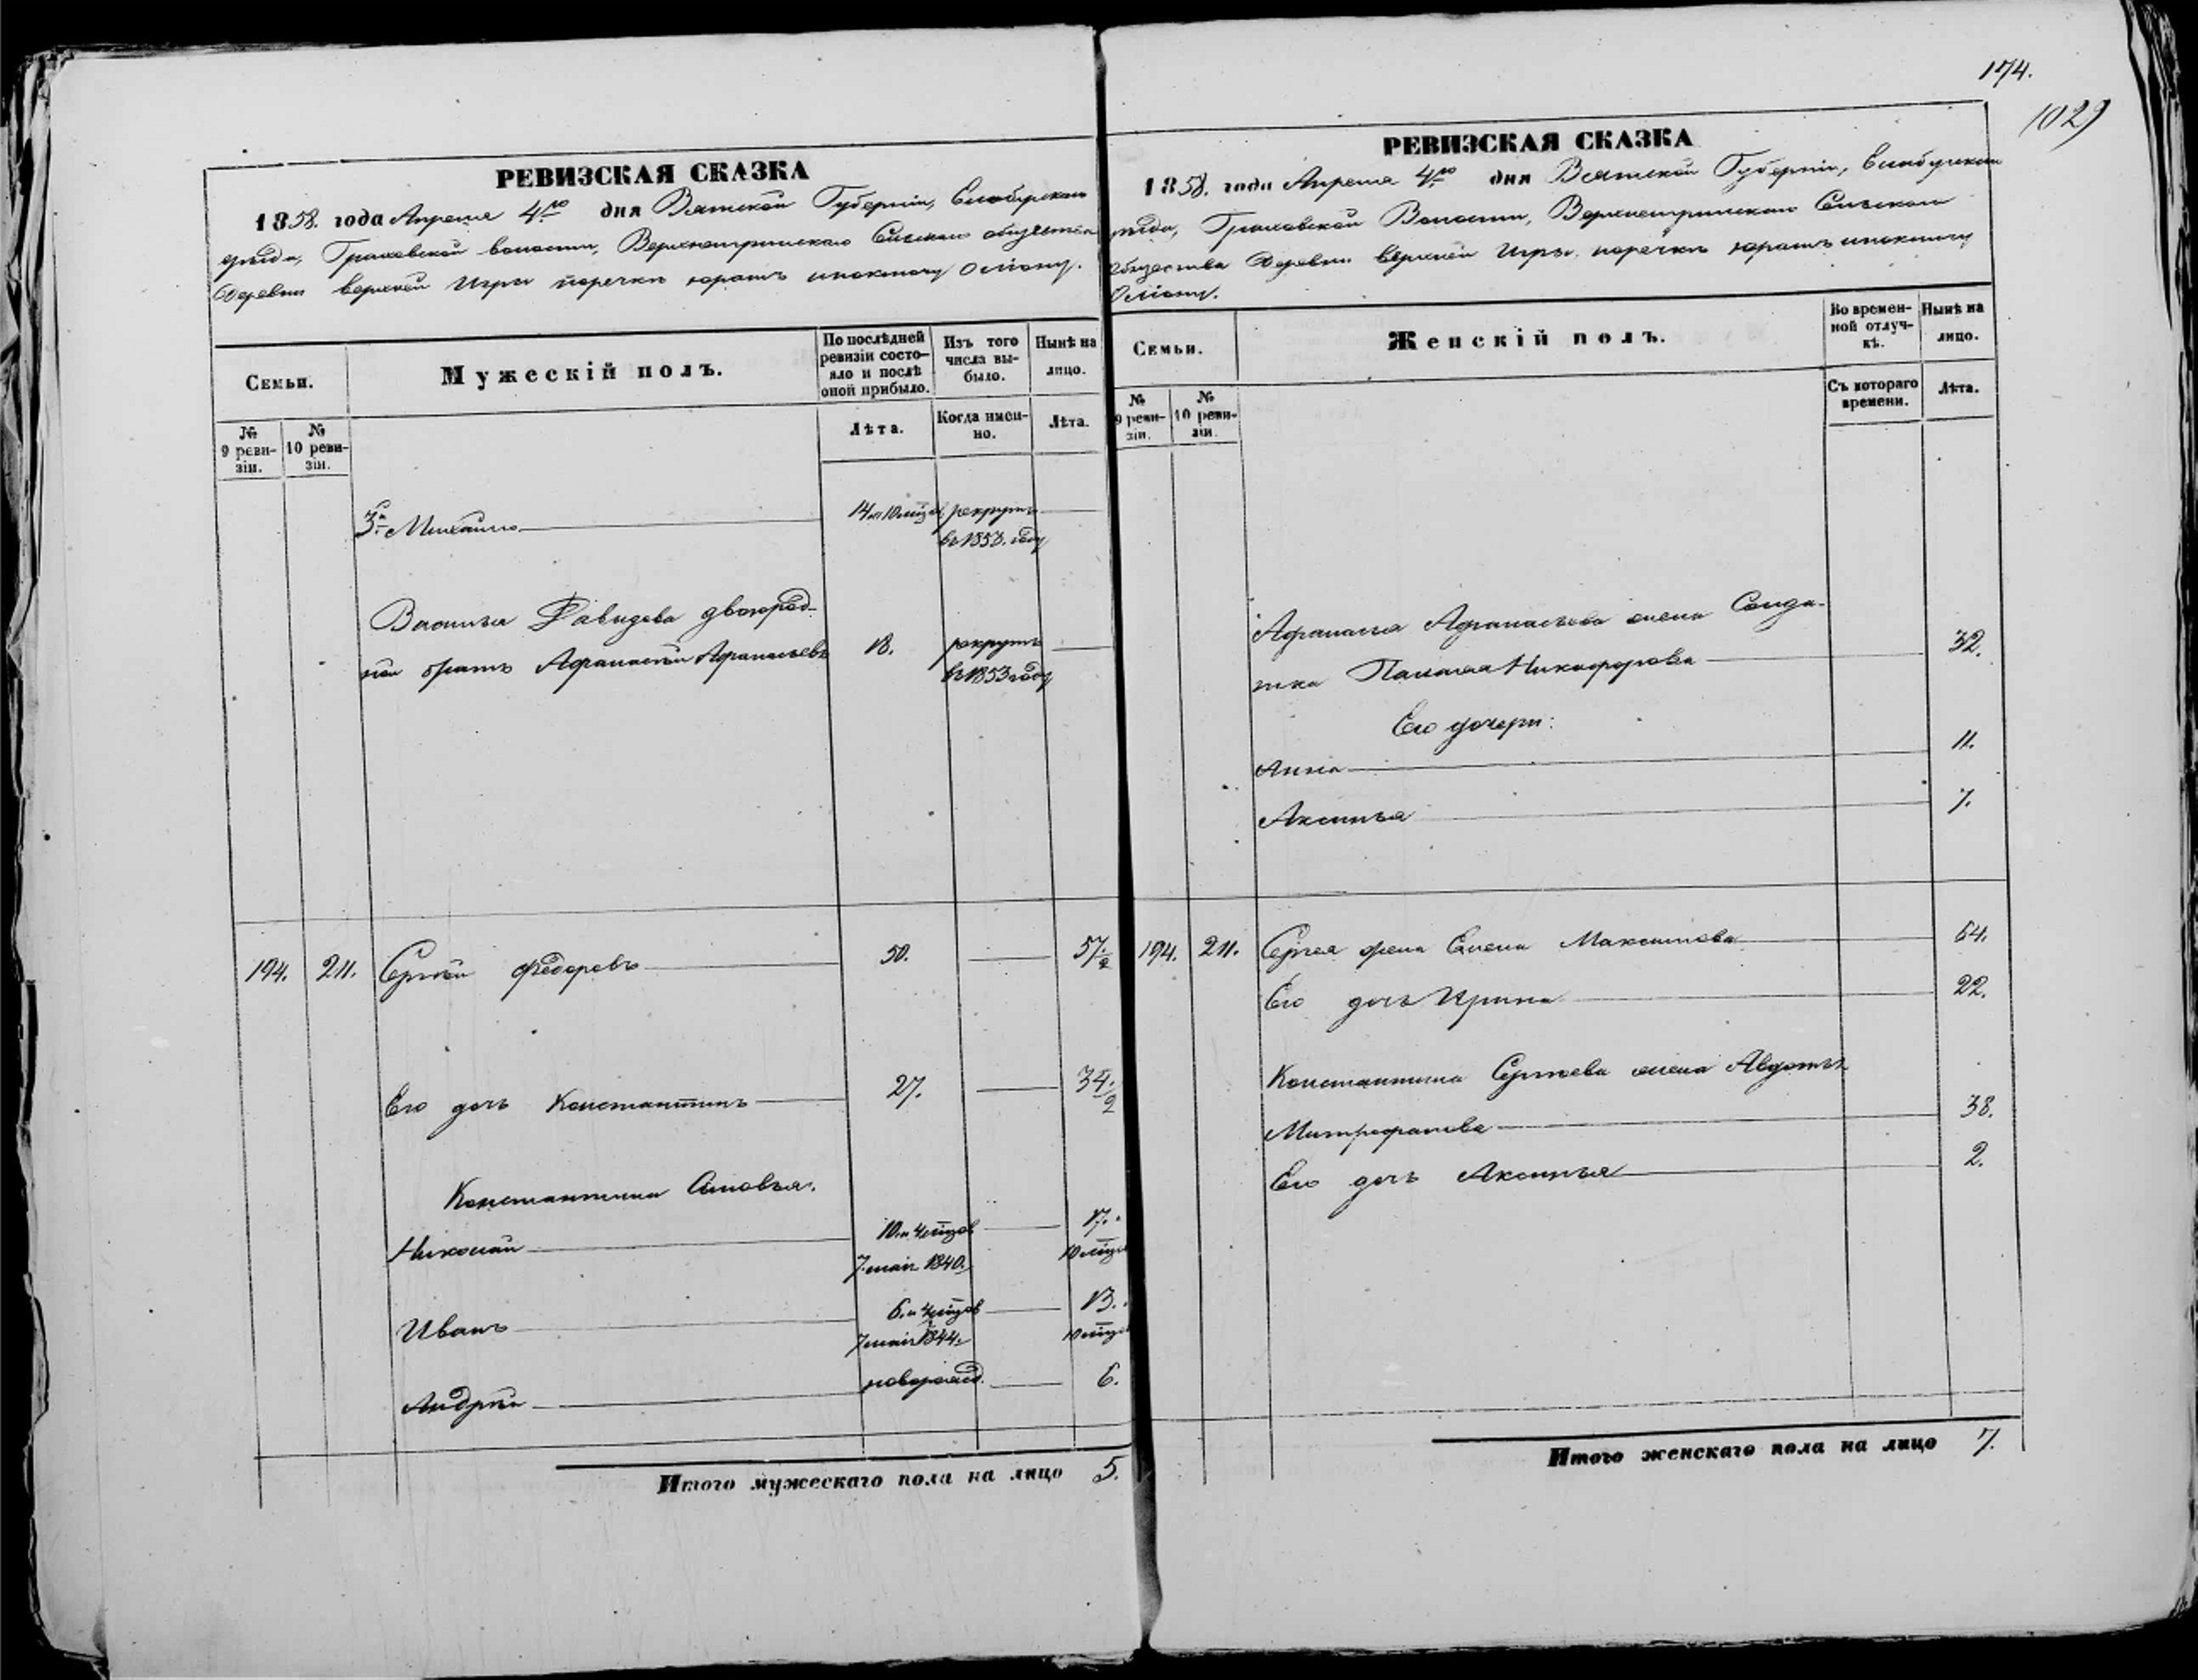 174.
1029
РЕВИЗСКАЯ СКАЗКА
1858. года Апреля 4го дня Вятской Губерніи, Елабужскаго
уѣзда, Граховской волости, Верхнеигринскаго Сельскаго общества
Деревни верхней Игры поречкѣ юрашъ
Семьи.
Мужескій полъ.
По послѣдней ревизіи состояло и послѣ оной прибыло.
Изъ того числа выбыло.
Нынѣ на лицо.
№ 9 ревизіи.
№ 10 ревизіи.
Лѣта.
Когда именно.
Лѣта.
3й Михайло 14 и 10 мѣцов рекрутъ
въ 1853. году
Василья Давидова двоюрод-
ной братъ Афанасѣй Афанасьевъ 18. рекрутъ
въ 1853 году
194. 211. Сергѣй Федоровъ 50. 57 1/2
Его дочь Константинъ 27. 34 1/2
Константина Сыновья.
Николай 10. и 4 мѣцов 17.
7 маія 1840. 10 мѣцов
Иванъ 6. и 4 мѣцов 13.
7 маія 1844. 10 мѣцов
Андрѣй новорожд. 6.
Итого мужескаго пола на лицо 5.
РЕВИЗСКАЯ СКАЗКА
1858. года Апреля 4го дня Вятской Губерніи, Елабужскаго
уѣзда, Граховской Волости, Верхнеигринскаго Сельскаго
общества Деревни верхней Игры поречкѣ юрашъ
Семьи.
Женскій полъ.
Во временной отлучкѣ.
Нынѣ на лицо.
№ 9 ревизіи.
№ 10 ревизіи.
Съ котораго времени.
Лѣта.
Афанасья Афанасьева жена Солда-
тка Палагея Никифорова 32.
Его дочери:
Анна 11.
Аксинья 7.
194. 211. Сергея жена Елена Максимова 54.
Его дочь Ирина 22.
Константина Сергѣева жена Авдотья
Митрофанова 38.
Его дочь Аксинья 2.
Итого женскаго пола на лицо 7.